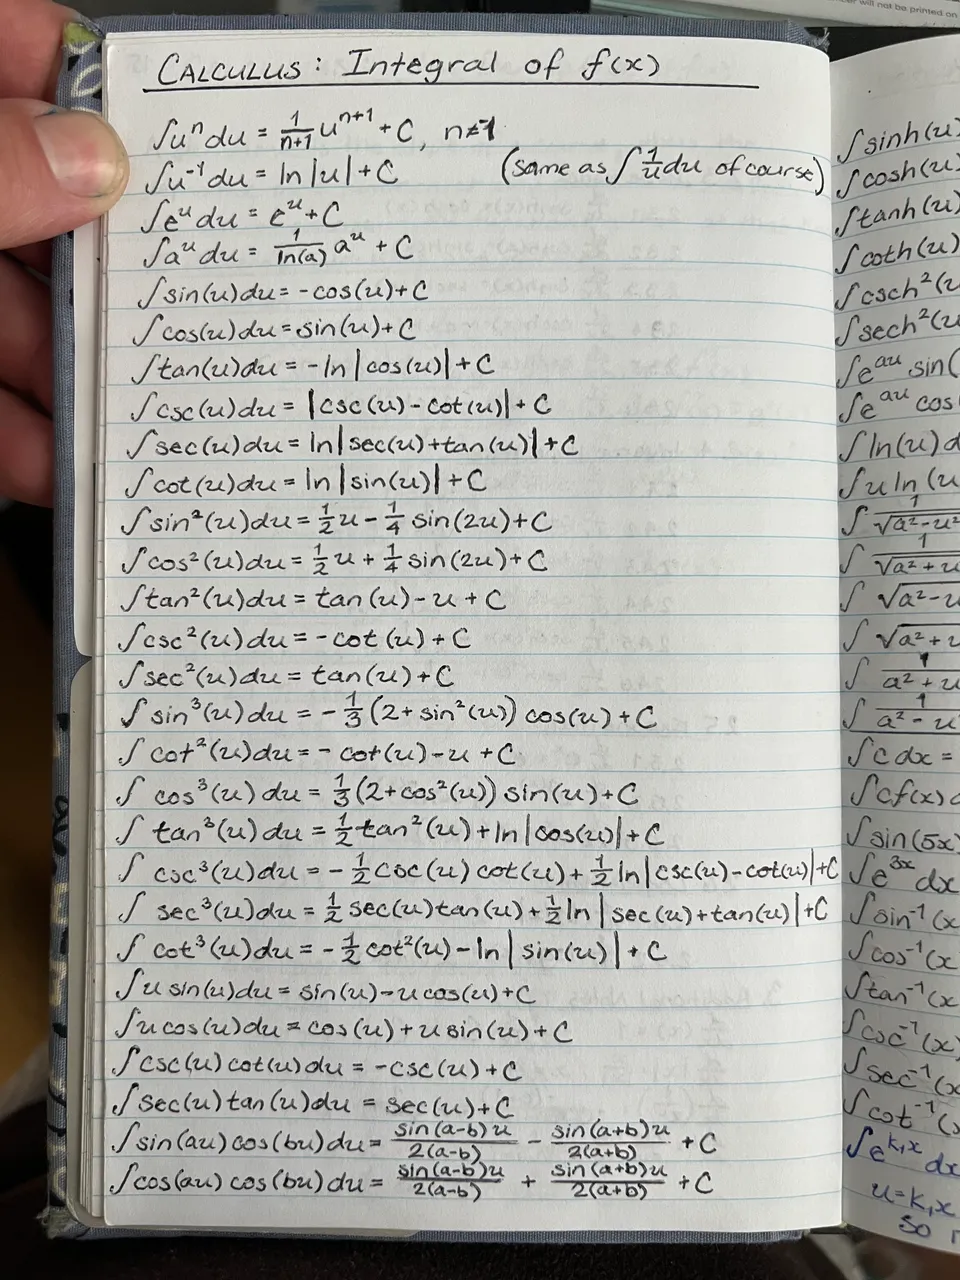 er will not be printed on
CALCULUS: Integral of f(x)
∫uⁿdu = 1/(n+1) uⁿ⁺¹ + C, n≠-1
∫u⁻¹du = ln|u| + C (same as ∫1/u du of course)
∫eᵘdu = eᵘ + C
∫aᵘdu = 1/ln(a) aᵘ + C
∫sin(u)du = -cos(u) + C
∫cos(u)du = sin(u) + C
∫tan(u)du = -ln|cos(u)| + C
∫csc(u)du = |csc(u) - cot(u)| + C
∫sec(u)du = ln|sec(u) + tan(u)| + C
∫cot(u)du = ln|sin(u)| + C
∫sin²(u)du = 1/2 u - 1/4 sin(2u) + C
∫cos²(u)du = 1/2 u + 1/4 sin(2u) + C
∫tan²(u)du = tan(u) - u + C
∫csc²(u)du = -cot(u) + C
∫sec²(u)du = tan(u) + C
∫sin³(u)du = -1/3 (2 + sin²(u)) cos(u) + C
∫cot²(u)du = -cot(u) - u + C
∫cos³(u)du = 1/3 (2 + cos²(u)) sin(u) + C
∫tan³(u)du = 1/2 tan²(u) + ln|cos(u)| + C
∫csc³(u)du = -1/2 csc(u) cot(u) + 1/2 ln|csc(u) - cot(u)| + C
∫sec³(u)du = 1/2 sec(u) tan(u) + 1/2 ln|sec(u) + tan(u)| + C
∫cot³(u)du = -1/2 cot²(u) - ln|sin(u)| + C
∫u sin(u)du = sin(u) - u cos(u) + C
∫u cos(u)du = cos(u) + u sin(u) + C
∫csc(u) cot(u)du = -csc(u) + C
∫sec(u) tan(u)du = sec(u) + C
∫sin(au) cos(bu)du = sin(a-b)u/2(a-b) - sin(a+b)u/2(a+b) + C
∫cos(au) cos(bu)du = sin(a-b)u/2(a-b) + sin(a+b)u/2(a+b) + C
∫sinh(u)
∫cosh(u)
∫tanh(u)
∫coth(u)
∫csch²(u
∫sech²(u
∫eᵃᵘ sin(
∫eᵃᵘ cos
∫ln(u) d
∫u ln(u
∫1/√a²-u²
∫1/√a²+u
∫√a²-u
∫√a²+u
∫1/a²+u
∫1/a²-u
∫c dx =
∫cf(x) d
∫sin(5x)
∫e³ˣ dx
∫sin⁻¹(x
∫cos⁻¹(x
∫tan⁻¹(x
∫csc⁻¹(x)
∫sec⁻¹(x
∫cot⁻¹(x
∫e^k₁x dx
u=k₁x
so